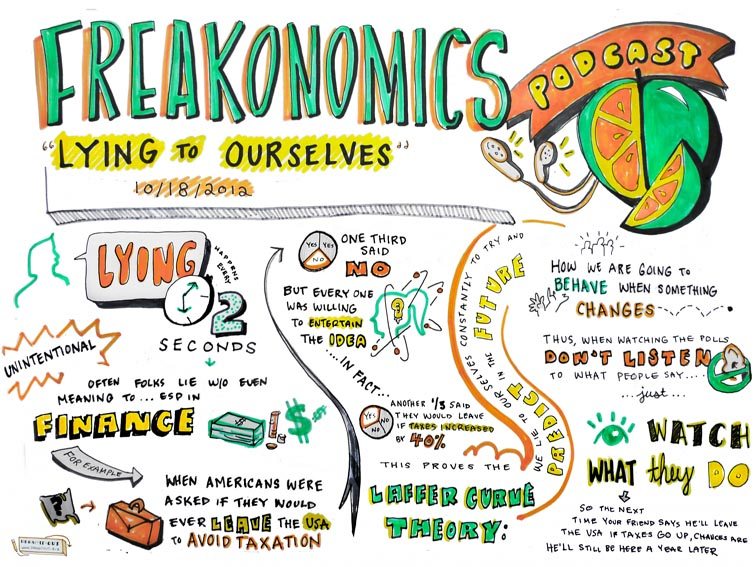 FREAKONOMICS
PODCAST
"LYING TO OURSELVES"
10/18/2012
LYING
HAPPENS
EVERY
2
SECONDS
UNINTENTIONAL
OFTEN FOLKS LIE W/O EVEN
MEANING TO... ESP IN
FINANCE
$
$
FOR EXAMPLE
?
WHEN AMERICANS WERE
ASKED IF THEY WOULD
EVER LEAVE THE USA
TO AVOID TAXATION
YES YES
NO
ONE THIRD
SAID
NO
BUT EVERY ONE
WAS WILLING
TO ENTERTAIN
THE IDEA
....IN FACT...
YES NO
NO
ANOTHER 1/3 SAID
THEY WOULD LEAVE
IF TAXES INCREASED
BY 40%
THIS PROVES THE
LAFFER CURVE
THEORY:
WE LIE TO OURSELVES CONSTANTLY TO TRY AND
PREDICT IN THE FUTURE
HOW WE ARE GOING TO
BEHAVE WHEN SOMETHING
CHANGES
THUS, WHEN WATCHING THE POLLS
DON'T LISTEN
TO WHAT PEOPLE SAY....
...just...
WATCH
WHAT they DO
SO THE NEXT
TIME YOUR FRIEND SAYS HE'LL LEAVE
THE USA IF TAXES GO UP, CHANCES ARE
HE'LL STILL BE HERE A YEAR LATER